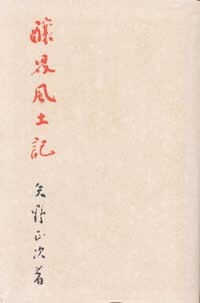 釀界風土記
矢野正次著